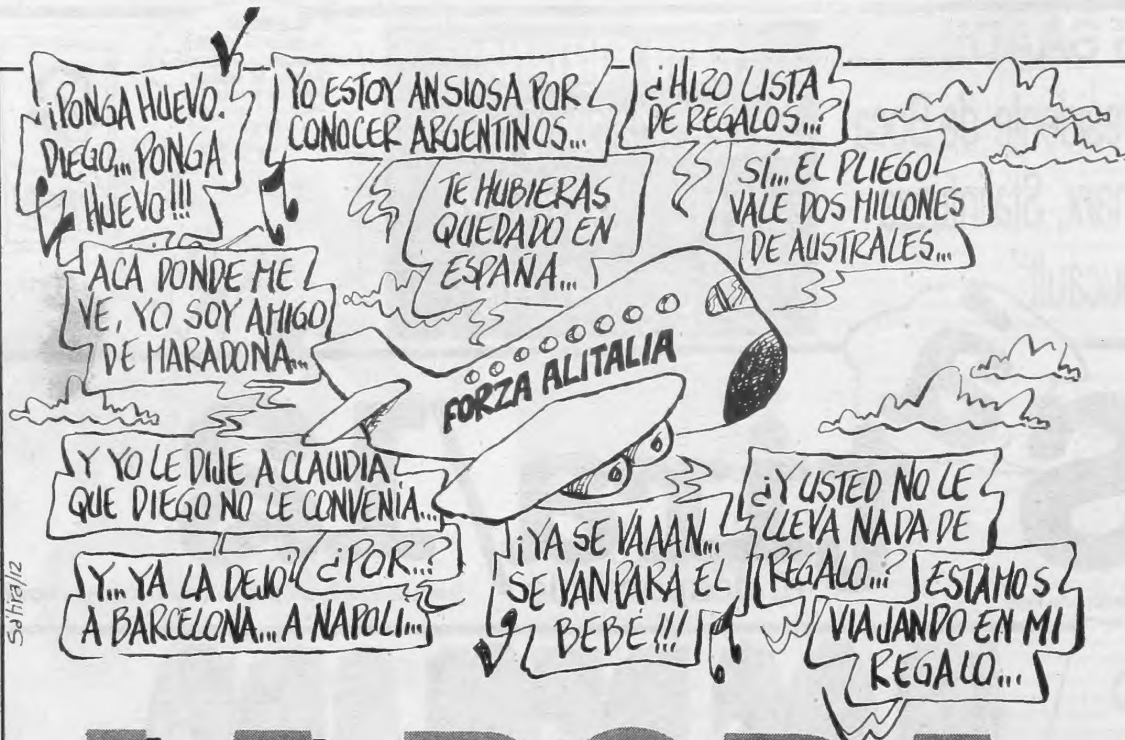 ¡PONGA HUEVO.
DIEGO... PONGA
HUEVO!!!
YO ESTOY ANSIOSA POR
CONOCER ARGENTINOS...
¿HIZO LISTA
DE REGALOS...?
TE HUBIERAS
QUEDADO EN
ESPAÑA...
SÍ... EL PLIEGO
VALE DOS MILLONES
DE AUSTRALES...
ACÁ DONDE ME
VE, YO SOY AMIGO
DE MARADONA...
FORZA ALITALIA
Y YO LE DIJE A CLAUDIA
QUE DIEGO NO LE CONVENÍA...
¿POR..?
Y... YA LA DEJO
A BARCELONA... A NAPOLI...
¡YA SE VAAAN...
SE VAN PARA EL
BEBÉ!!!
¿Y USTED NO LE
LLEVA NADA DE
REGALO...?
ESTAMOS
VIAJANDO EN MI
REGALO...
Sátira/12